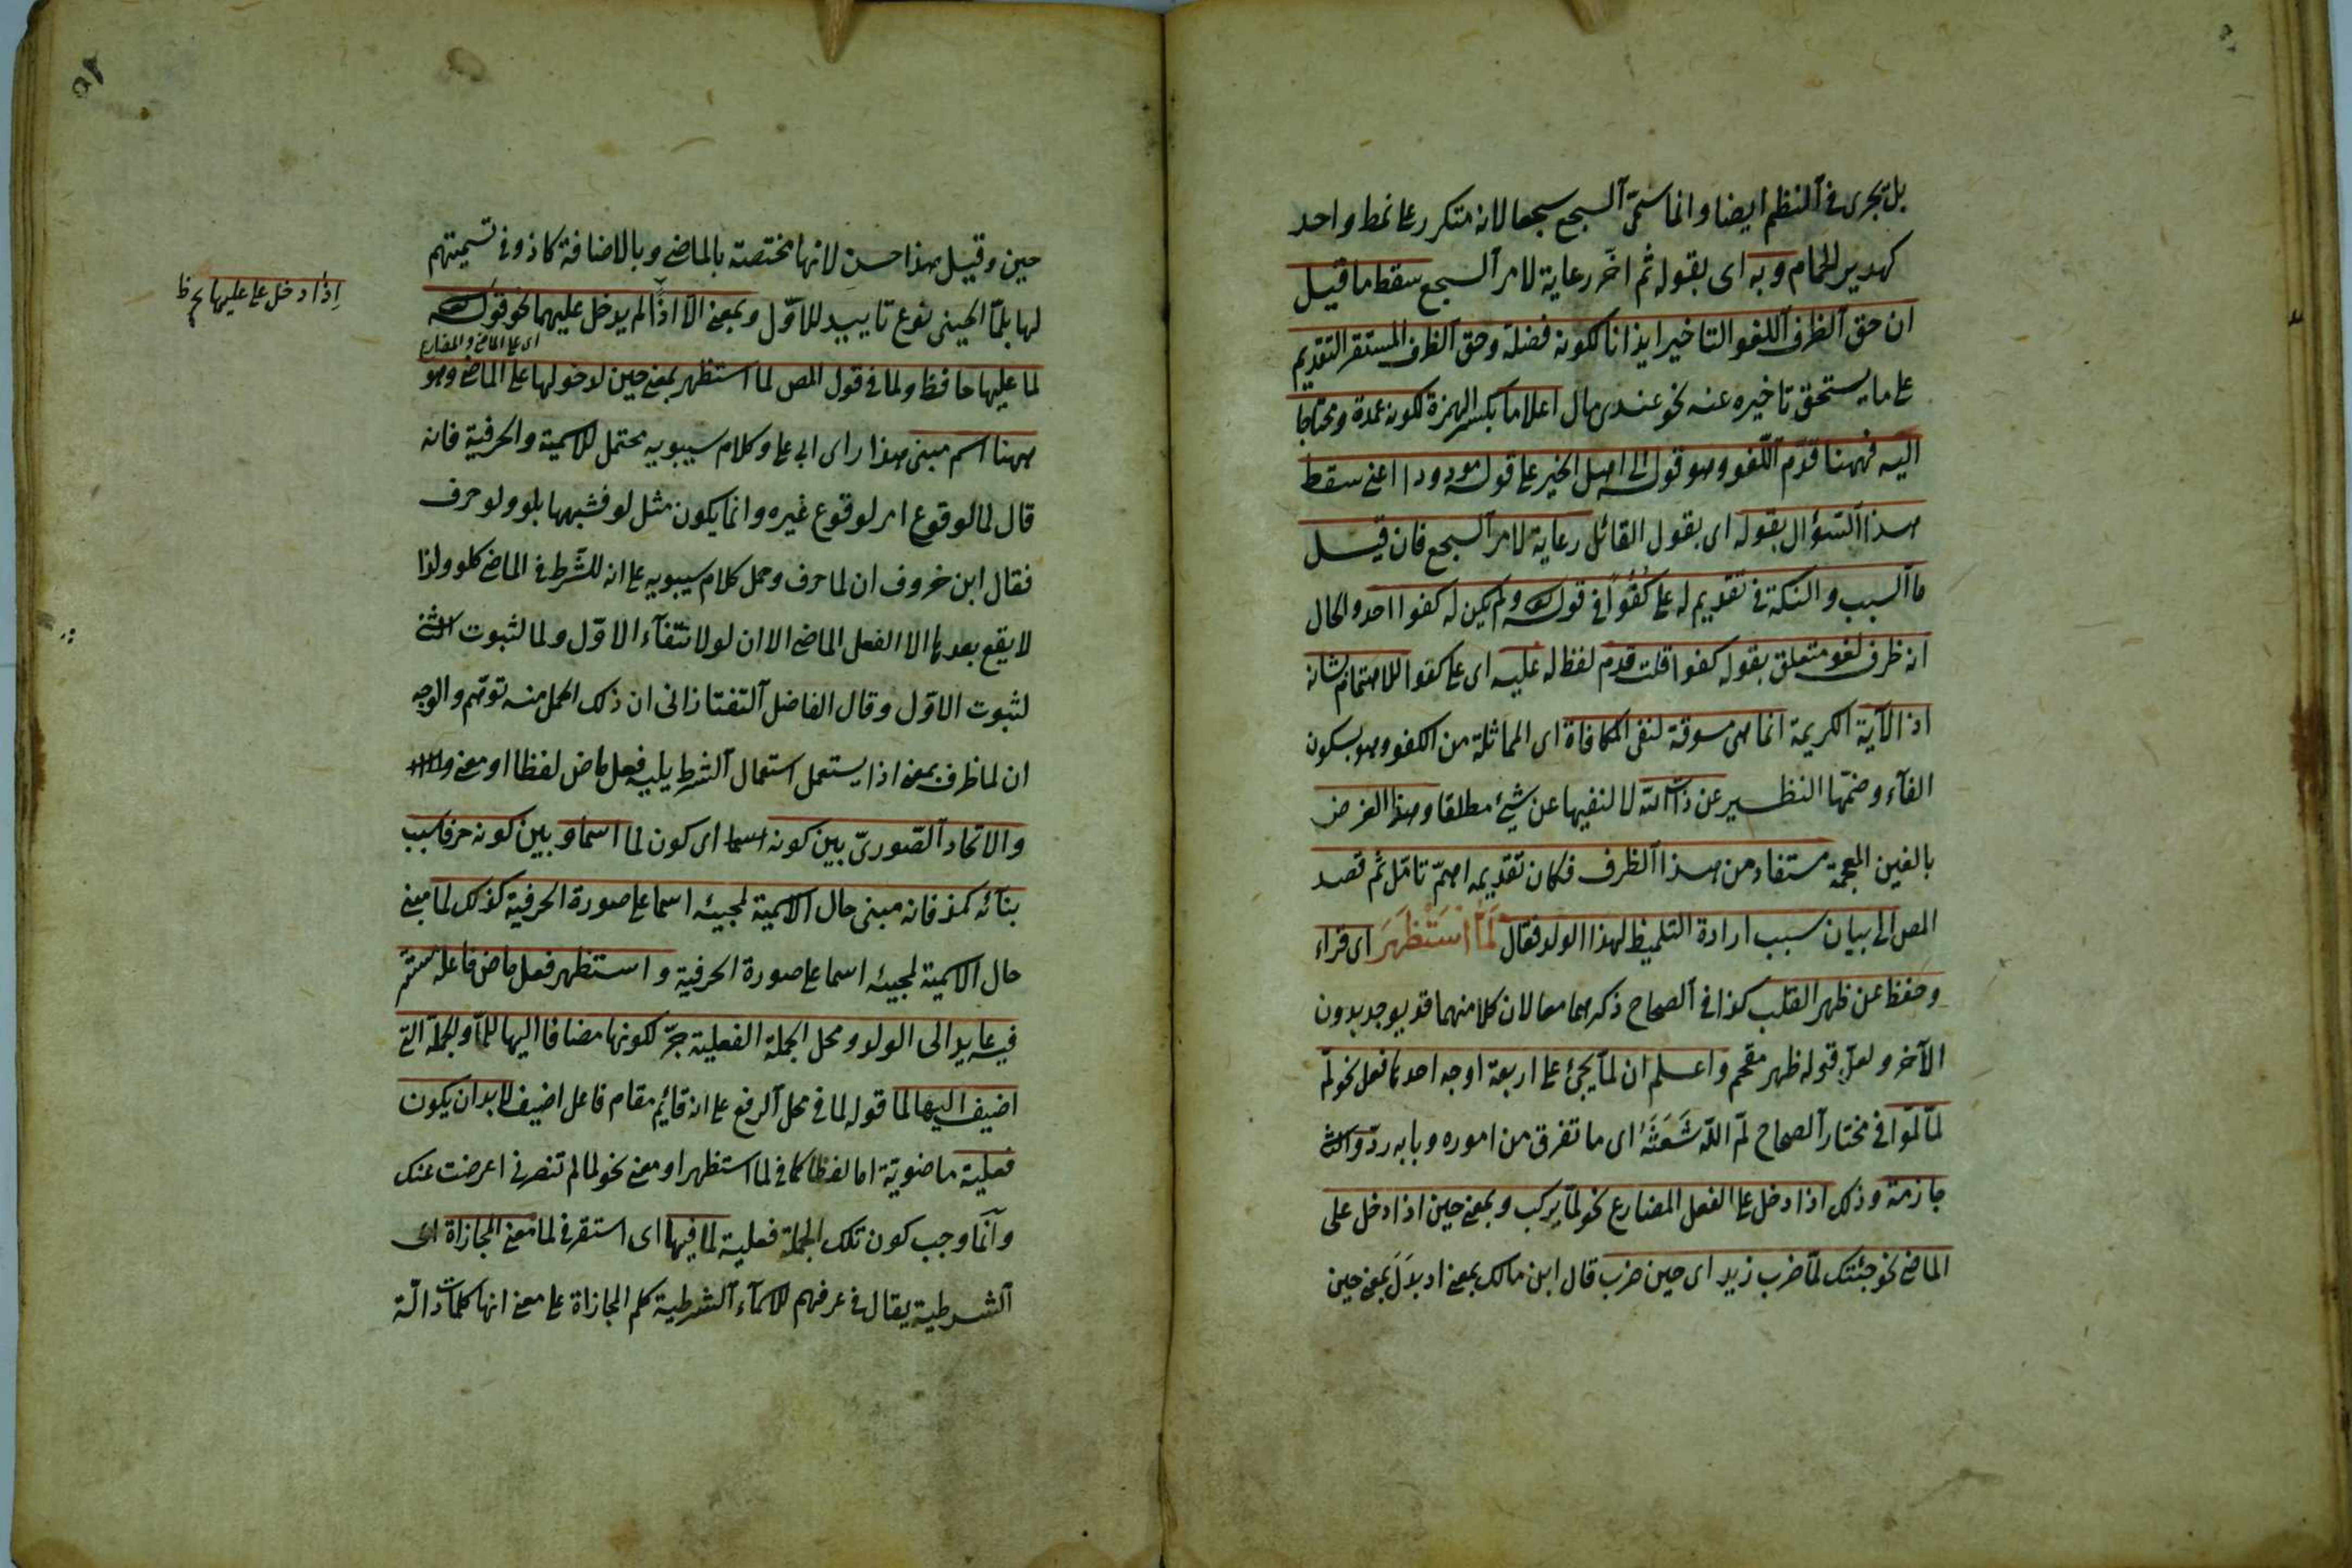 بل تجرى فى النظم ايضا وانما سمّى السجع سجعا لانه متكرر على نمط واحد
كهدير الحمام وبه اى بقوله ثم اخّر رعاية لامر السجع سقط ما قيل
ان حق الظرف اللغو التاخير ايذانا لكونه فضلة وحق الظرف المستقر التقديم
على ما يستحق تاخيره عنه نحو عندى مال اعلاما بكسر الهمزة لكونه عمدة ومحتاجا
اليه فههنا قدّم اللغو وهو قوله الى اهل الخير على قوله مودودا اعنى سقط
هذا السؤال بقوله اى بقول القائل رعاية لامر السجع فان قيل
ما السبب والنكتة فى تقديم له على كفُؤًا فى قوله ولم يكن له كفوا احد والحال
انه ظرف لغو متعلق بقوله كفوا قلت قدم لفظ له عليه اى على كفوا للاهتمام بشانه
اذ الآية الكريمة انما هى مسوقة لنفى المكافاة اى المماثلة من الكفو وهو بسكون
الفآء وضمّها النظير عن ذات الله لا لنفيها عن شئ مطلقا وهذا الغرض
بالغين المعجمة مستفاد من هذا الظرف فكان تقديمه اهمّ تامّل ثم قصد
المص الى بيان سبب ارادة التلميظ لهذا الولد فقال لَمَّا اسْتَظْهَرَ اى قراء
وحفظ عن ظهر القلب كذا فى الصحاح ذكرهما معا لان كلا منهما قد يوجد بدون
الآخر ولعل قوله ظهر مقحم واعلم ان لمّا يجئ على اربعة اوجه احدها فعل نحو لمّ
لمّا لمّوا فى مختار الصحاح لمّ اللّه شَعَثَهُ اى ما تفرق من اموره وبابه ردّ والثا
جازمة وذلك اذا دخل على الفعل المضارع نحو لمّا يركب وبمعنى حين اذا دخل على
الماضى نحو جئتك لمّا ضرب زيد اى حين ضرب قال ابن مالك بمعنى اذ بدَلَ بمعنى حين
حين وقيل هذا حسن لانها مختصة بالماضى وبالاضافة كاذ وفى تسميتهم
لها بلمّا الحينى نوع تاييد للاوّل وبمعنى الّا اذًا لم يدخل عليهما نحو قوله
اى على الماضى والمضارع
اذا دخل على عليها حافظ
لما عليها حافظ ولما فى قول المص لما استظهر بمعنى حين لدخولها على الماضى وهو
ههنا اسم مبنى هذا راى ابى على وكلام سيبويه محتمل للاسمية والحرفية فانه
قال لما لوقوع امر لوقوع غيره وانما يكون مثل لو فشبهها بلو ولو حرف
فقال ابن خروف ان لما حرف وحمل كلام سيبويه على انه للشَّرط فى الماضى كلو ولذا
لا يقع بعدها الا الفعل الماضى الا ان لو لانتفآء الاوّل ولما لثبوت الثنى
لثبوت الاوّل وقال الفاضل التفتازانى ان ذلك الحمل منه توهّم والوجه
ان لما ظرف بمعنى اذا يستعمل استعمال الشرط يليه فعل ماض لفظا او معنى
والاتحاد الصّورىّ بين كونه اسما اى كون لما اسما وبين كونه حرفا سبب
بنائه كمذ فانه مبنى حال الاسمية لمجيئه اسما على صورة الحرفية كذلك لما مبنى
حال الاسمية لمجيئه اسما على صورة الحرفية واستظهر فعل ماض فاعله مستتر
فيه عايد الى الولد ومحل الجملة الفعلية جرّ لكونها مضافا اليها للمّا والجملة التى
اضيف اليها لما قوله لما فى محل الرفع على انه قائم مقام فاعل اضيف لابد ان يكون
فعلية ماضوية اما لفظا كما فى لما استظهر او معنى نحو لما لم تنصرنى اعرضت عنك
وانّما وجب كون تلك الجملة فعلية لما فيها اى استقر فى لما معنى المجازاة اى
الشرطية يقال فى عرفهم للاسمآء الشرطية كلم المجازاة على معنى انها كلمات دالّة